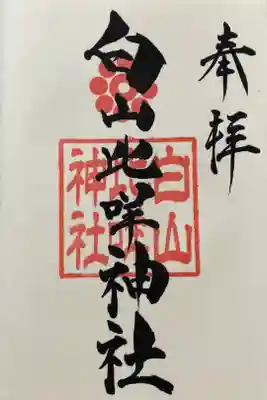 奉拝
白山比咩神社
白山
比咩
神社